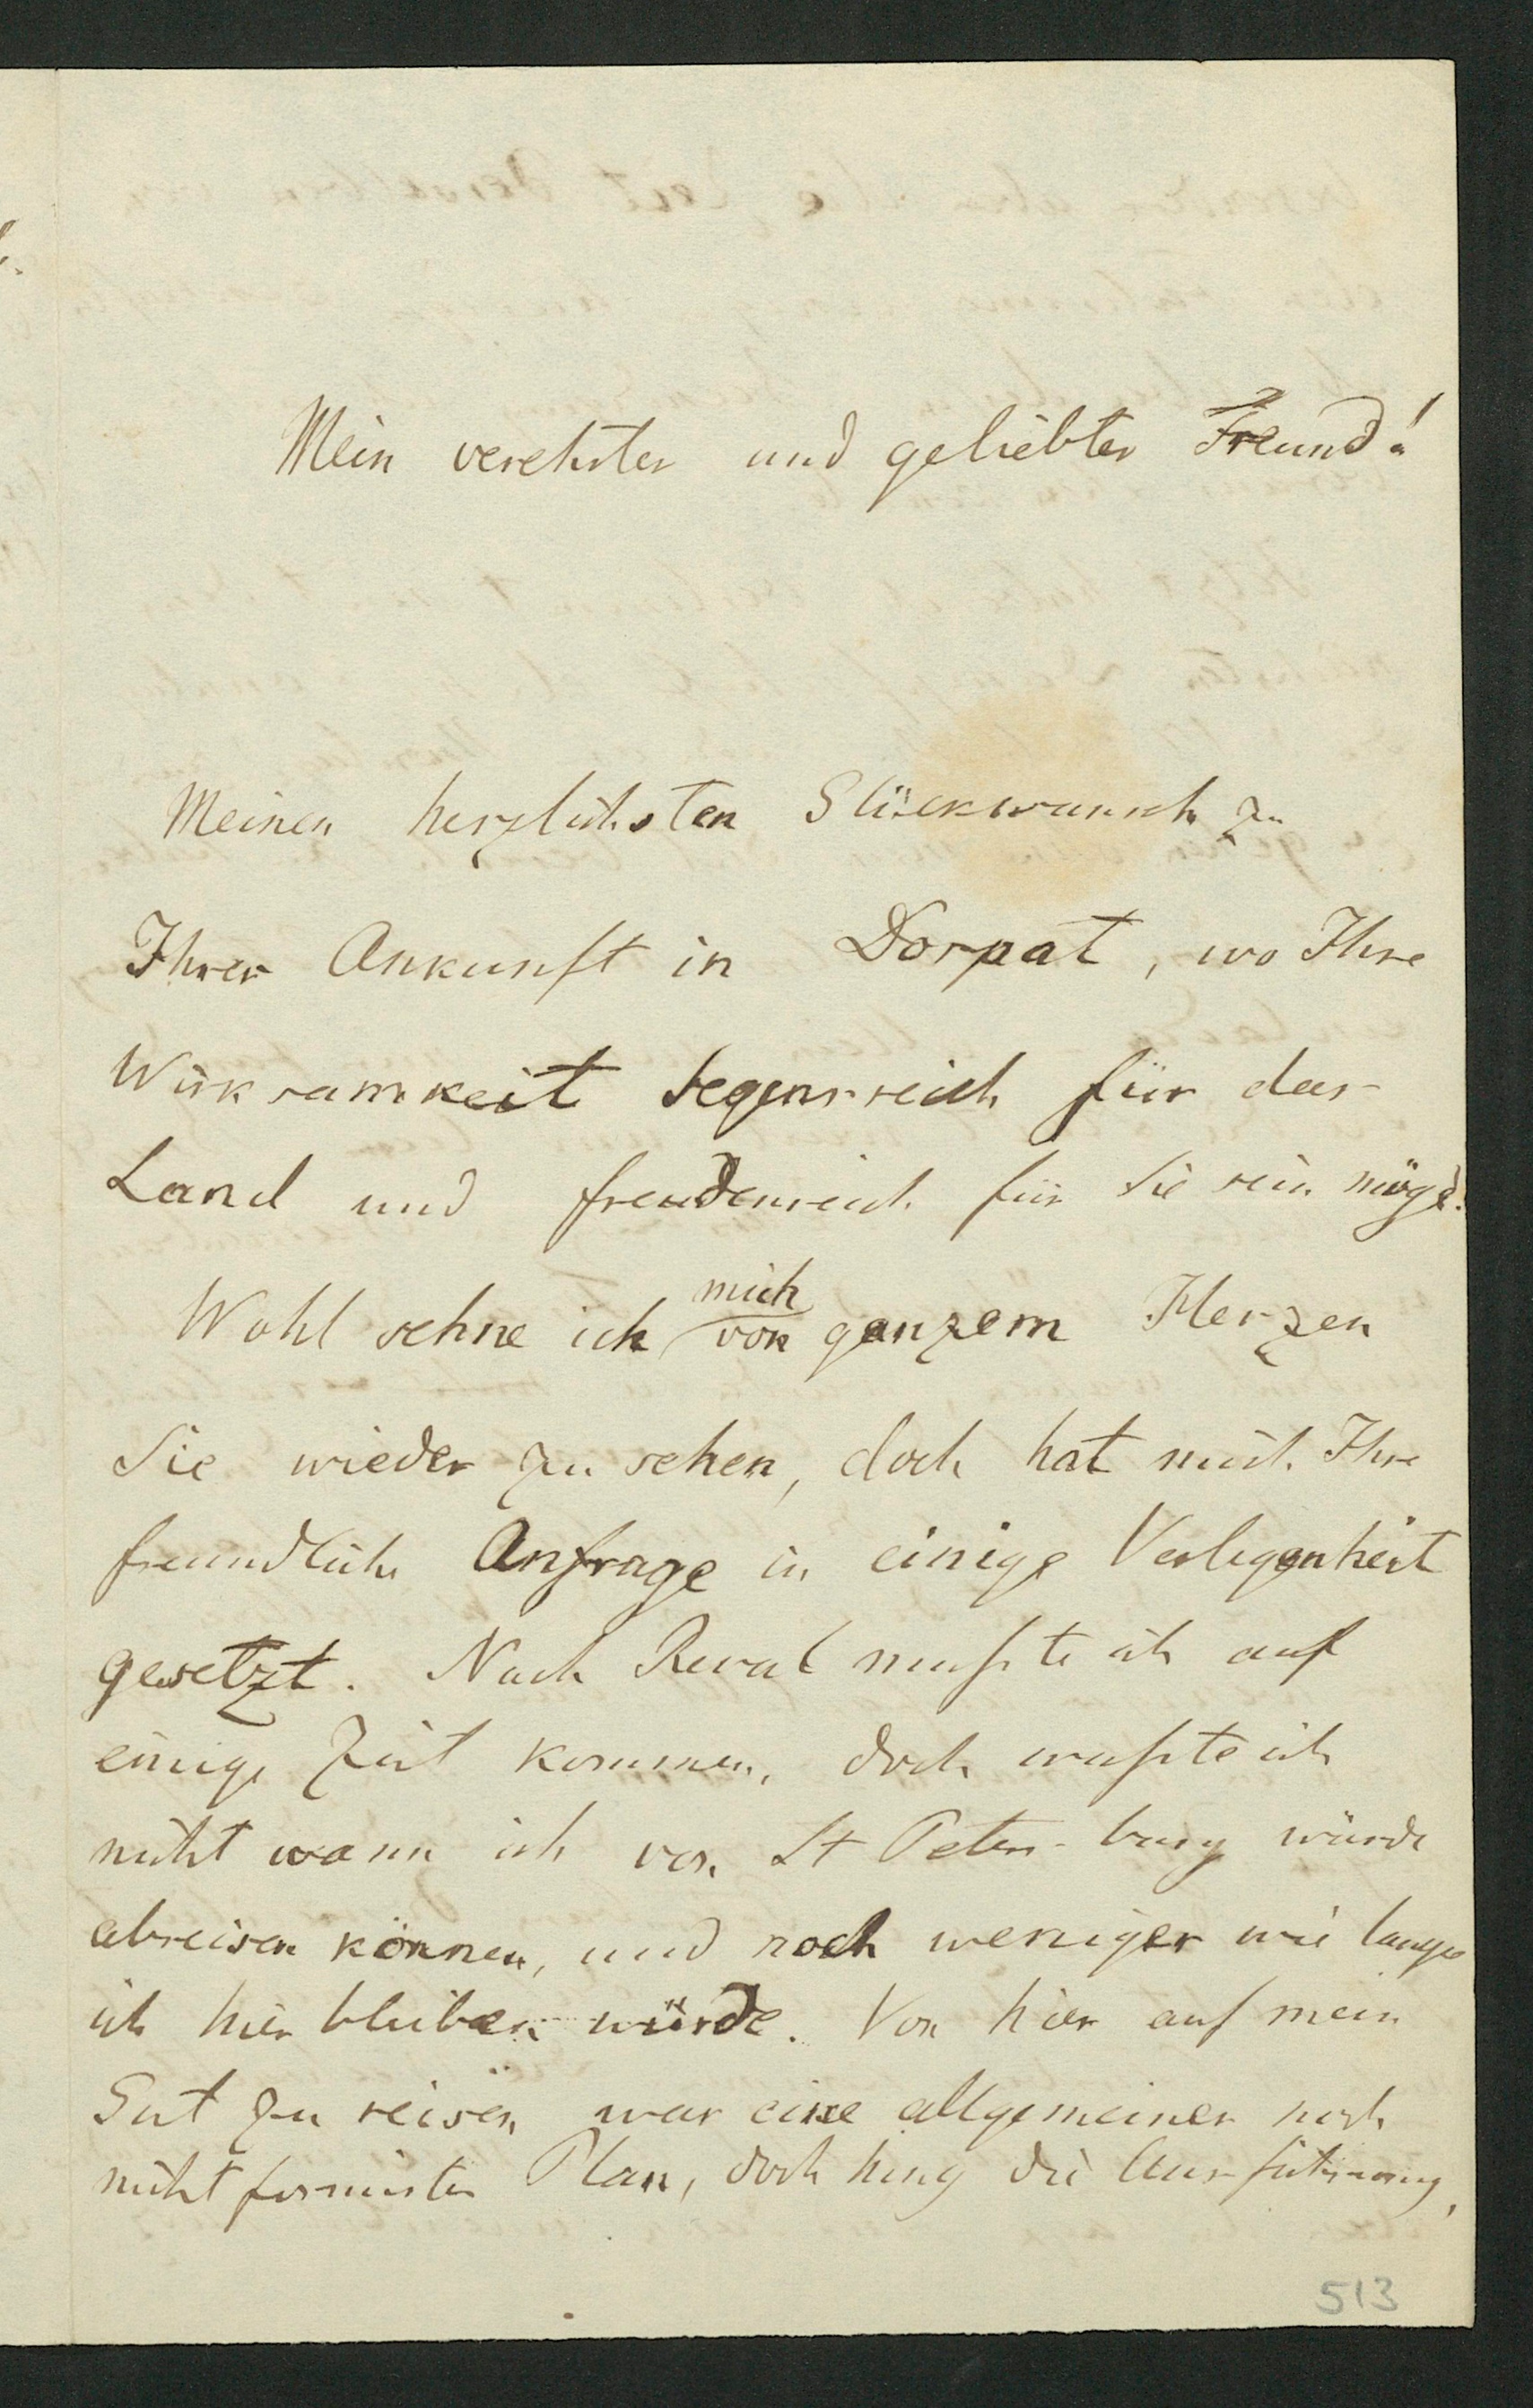 Mein verehrter und geliebter Freund!
Meinen herzlichsten Glückwunsch zu
Ihrer Ankunft in Dorpat, wo Ihre
Wirksamkeit segensreich für das
Land und freudenreich für Sie sein möge.
Wohl sehne ich mich von ganzem Herzen
Sie wieder zu sehen, doch hat mich Ihre
freundliche Anfrage in einige Verlegenheit
gesetzt. Nach Reval mußte ich auf
einige Zeit kommen, doch wußte ich
nicht wann ich von St Petersburg würde
abreisen können, und noch weniger wie lange
ich hier bleiben würde. Von hier auf mein
Gut zu reisen war eine allgemeiner noch
nicht formirter Plan, doch hing die Ausführung,
513